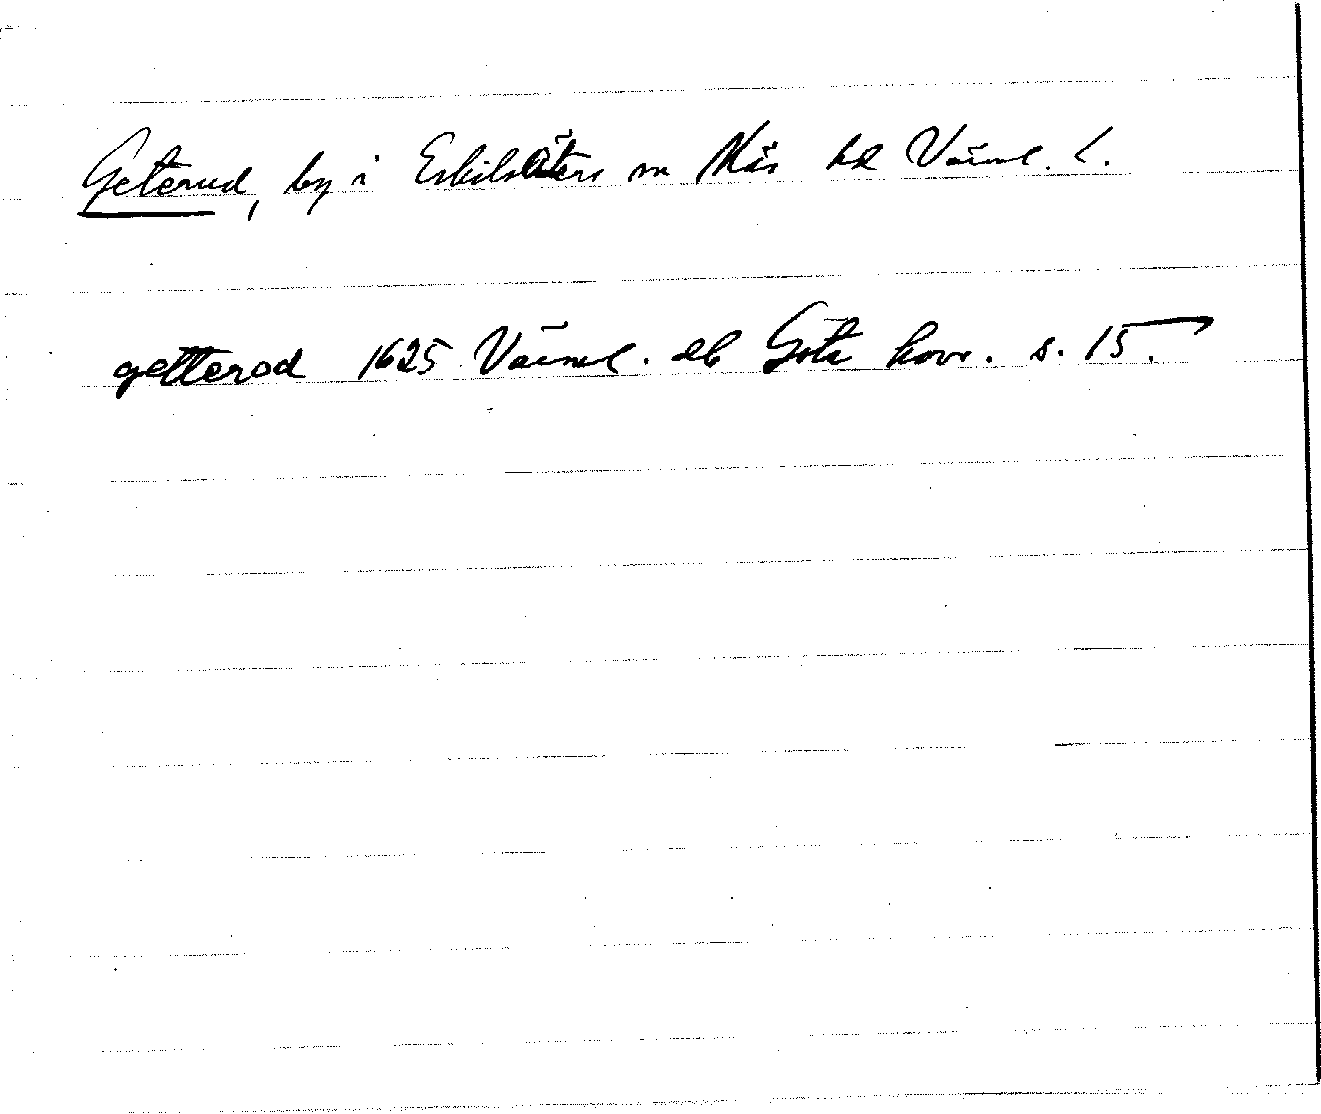 Geterud, by i Eskilsäters sn Näs hd Värml. l.
getterod 1625 Värml. Älb Göta hovr. s. 15.